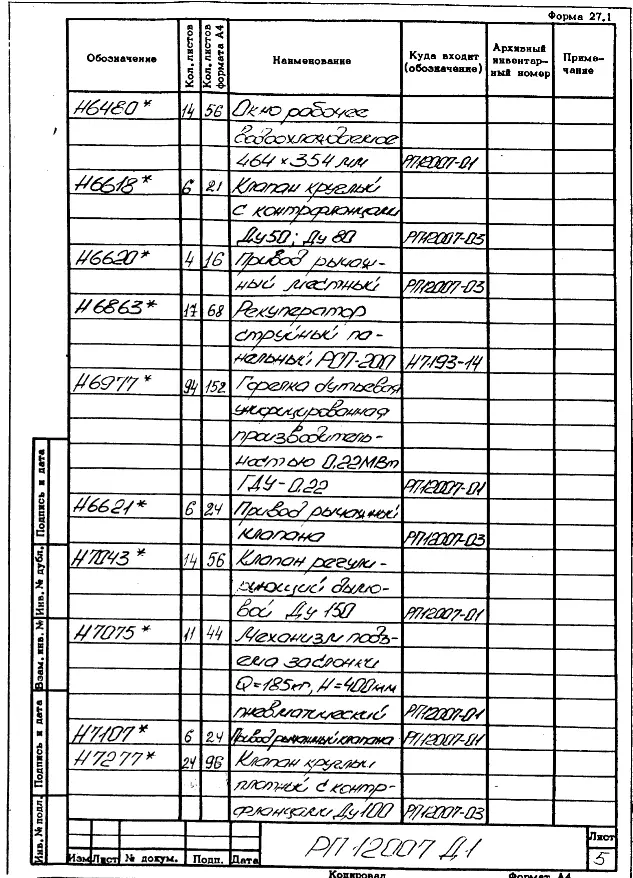 Форма 27.1
Обозначение Кол. листов Кол. листов формата А4 Наименование Куда входит (обозначение) Архивный инвентарный номер Примечание
Н6480* 14 56 Окно рабочее
водоохлаждаемое
464×354 мм РП12007-01
Н6618* 6 21 Клапан круглый
с контрфланцами
Ду50; Ду 80 РП12007-03
Н6620* 4 16 Привод рычаж-
ный местный РП12007-03
Н6863* 17 68 Рекуператор
струйный па-
нельный РСП-200 Н7193-14
Н6977* 94 152 Горелка дутьевая
унифицированная
производитель-
ностью 0.22МВт
ГДУ-0.22 РП12007-01
Н6621* 6 24 Привод рычажный
клапана РП12007-03
Н7043* 14 56 Клапан регули-
рующий дымо-
вой Ду 150 РП12007-01
Н7075* 11 44 Механизм подъ-
ема заслонки
Q=185кг, Н=400мм
пневматический РП12007-01
Н7107* 6 24 Привод рычажный клапана РП12007-01
Н7277* 24 96 Клапан круглый
плотный с контр-
фланцами Ду100 РП12007-03
Подпись и дата
Инв. № дубл.
Взам. инв. №
Подпись и дата
Инв. № подл.
Изм Лист № докум. Подп. Дата
РП 12007 Д1
Лист
5
Копировал Формат А4